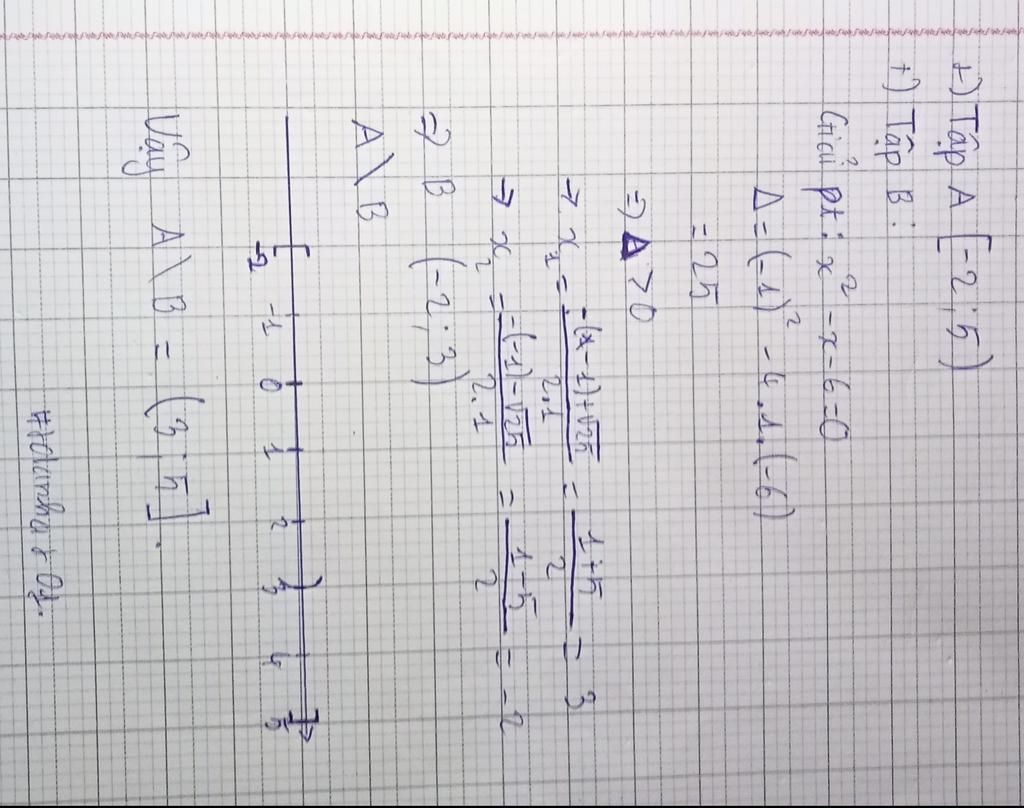 +) Tập A [-2; 5)
+) Tập B:
Giải pt: x² - x - 6 = 0
Δ = (-1)² - 4.1.(-6)
= 25
=> Δ > 0
→ x₁ = -(x-1)+√25 / 2.1 = 1+5 / 2 = 3
→ x₂ = -(-1)-√25 / 2.1 = 1-5 / 2 = -2
=> B (-2; 3)
A \ B
-2 -1 0 1 2 3 4 5
Vậy A \ B = (3; 5].